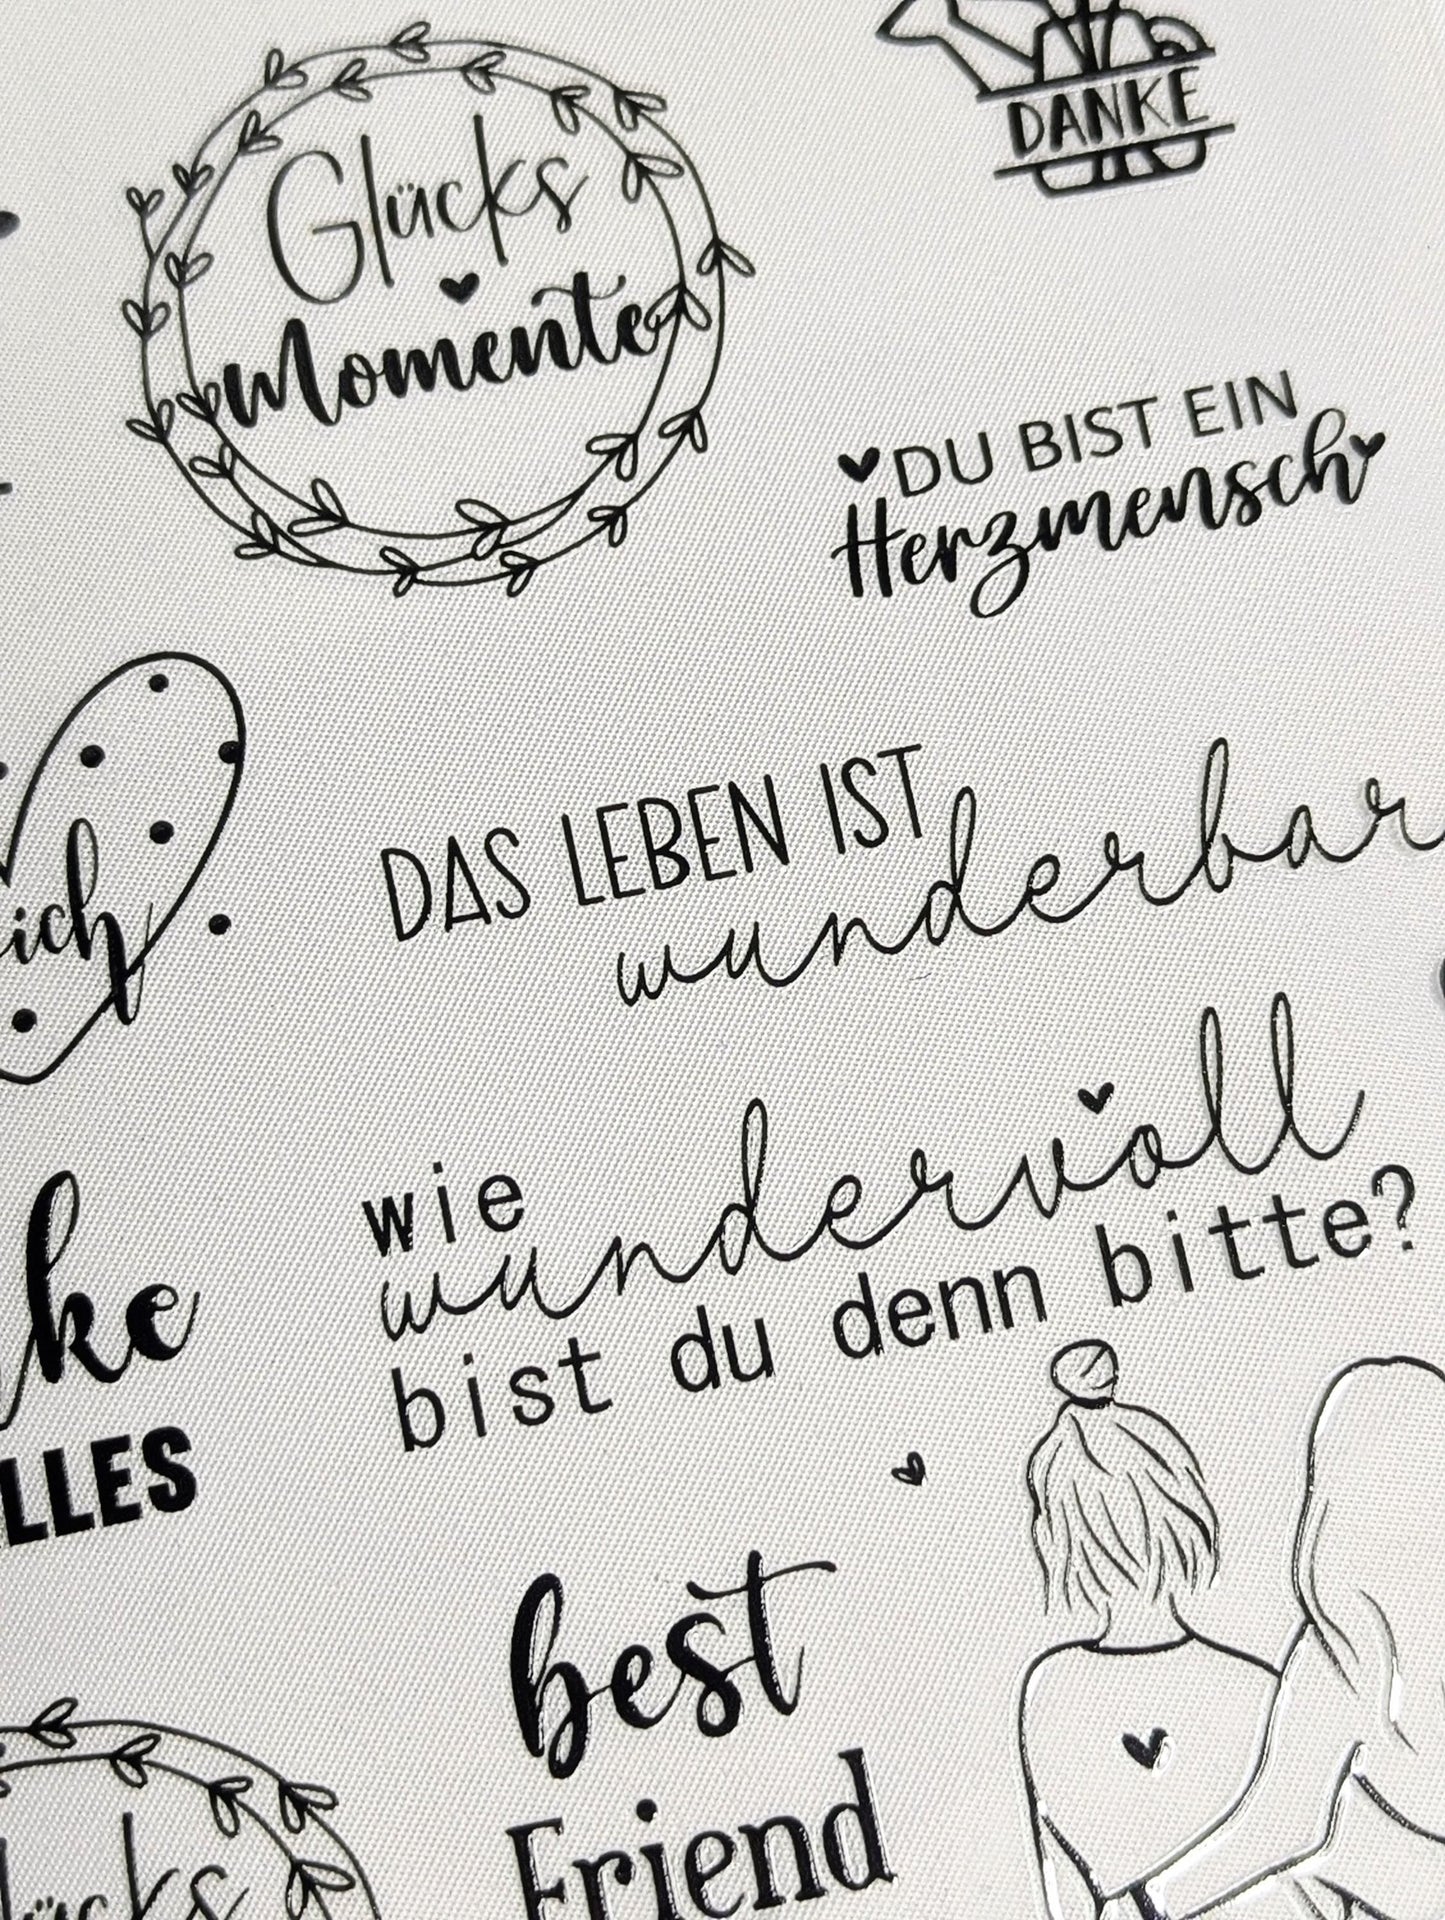 Glücks
Momente
DANKE
DU BIST EIN
Herzmensch
DAS LEBEN IST
wunderbar
wie
wundervoll
bist du denn bitte?
best
Friend